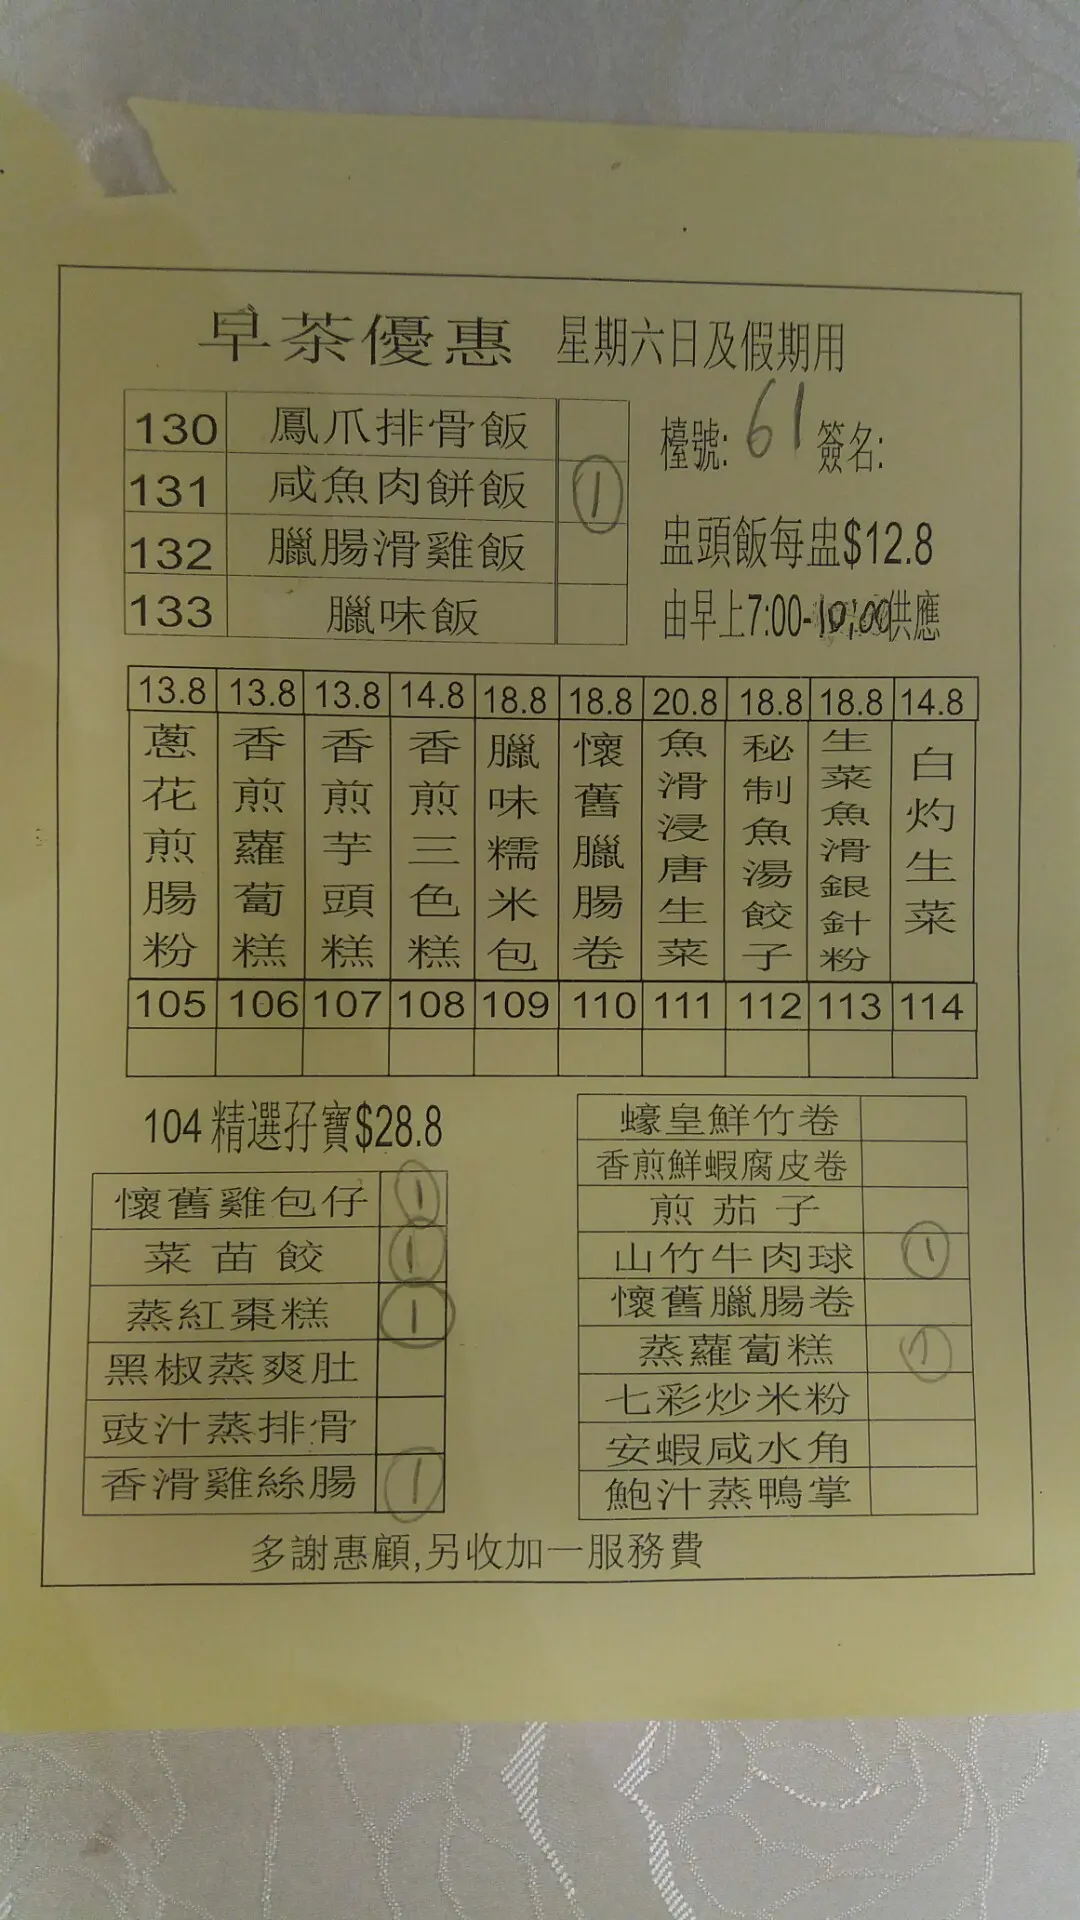 早茶優惠 星期六日及假期用
130 鳳爪排骨飯
131 咸魚肉餅飯 1
132 臘腸滑雞飯
133 臘味飯
檯號: 61 簽名:
盅頭飯每盅$12.8
由早上7:00-10:00供應
13.8 13.8 13.8 14.8 18.8 18.8 20.8 18.8 18.8 14.8
蔥花煎腸粉
香煎蘿蔔糕
香煎芋頭糕
香煎三色糕
臘味糯米包
懷舊臘腸卷
魚滑浸唐生菜
秘制魚湯餃子
生菜魚滑銀針粉
白灼生菜
105 106 107 108 109 110 111 112 113 114
104 精選孖寶$28.8
懷舊雞包仔 1
菜苗餃 1
蒸紅棗糕 1
黑椒蒸爽肚
豉汁蒸排骨
香滑雞絲腸 1
蠔皇鮮竹卷
香煎鮮蝦腐皮卷
煎茄子
山竹牛肉球 1
懷舊臘腸卷
蒸蘿蔔糕 1
七彩炒米粉
安蝦咸水角
鮑汁蒸鴨掌
多謝惠顧,另收加一服務費